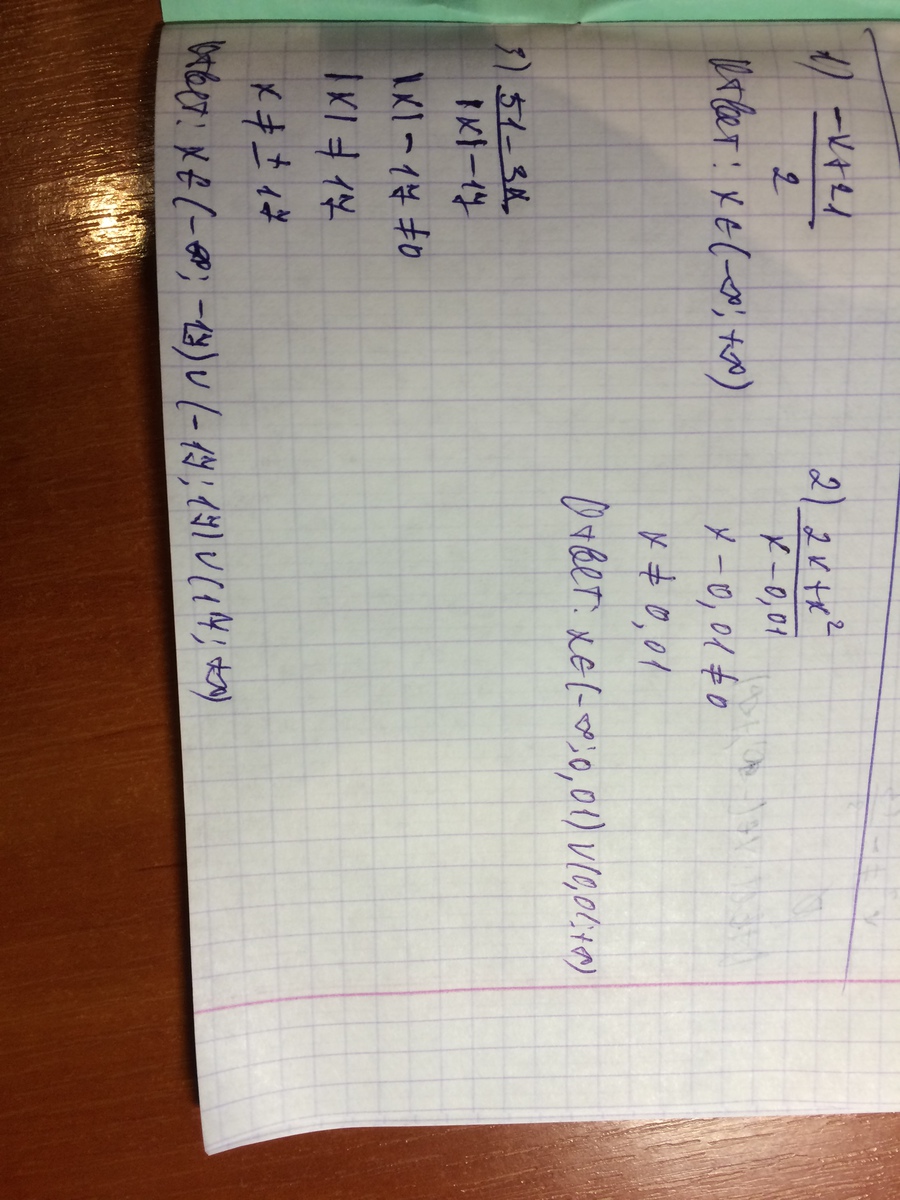 1) -x+21
2
Ответ: x∈(-∞; +∞)
2) 2x+x²
x-0,01
x-0,01≠0
x≠0,01
Ответ: x∈(-∞; 0,01)∪(0,01; +∞)
3) 51-3x
|x|-17
|x|-17≠0
|x|≠17
x≠±17
Ответ: x∈(-∞; -17)∪(-17; 17)∪(17; +∞)